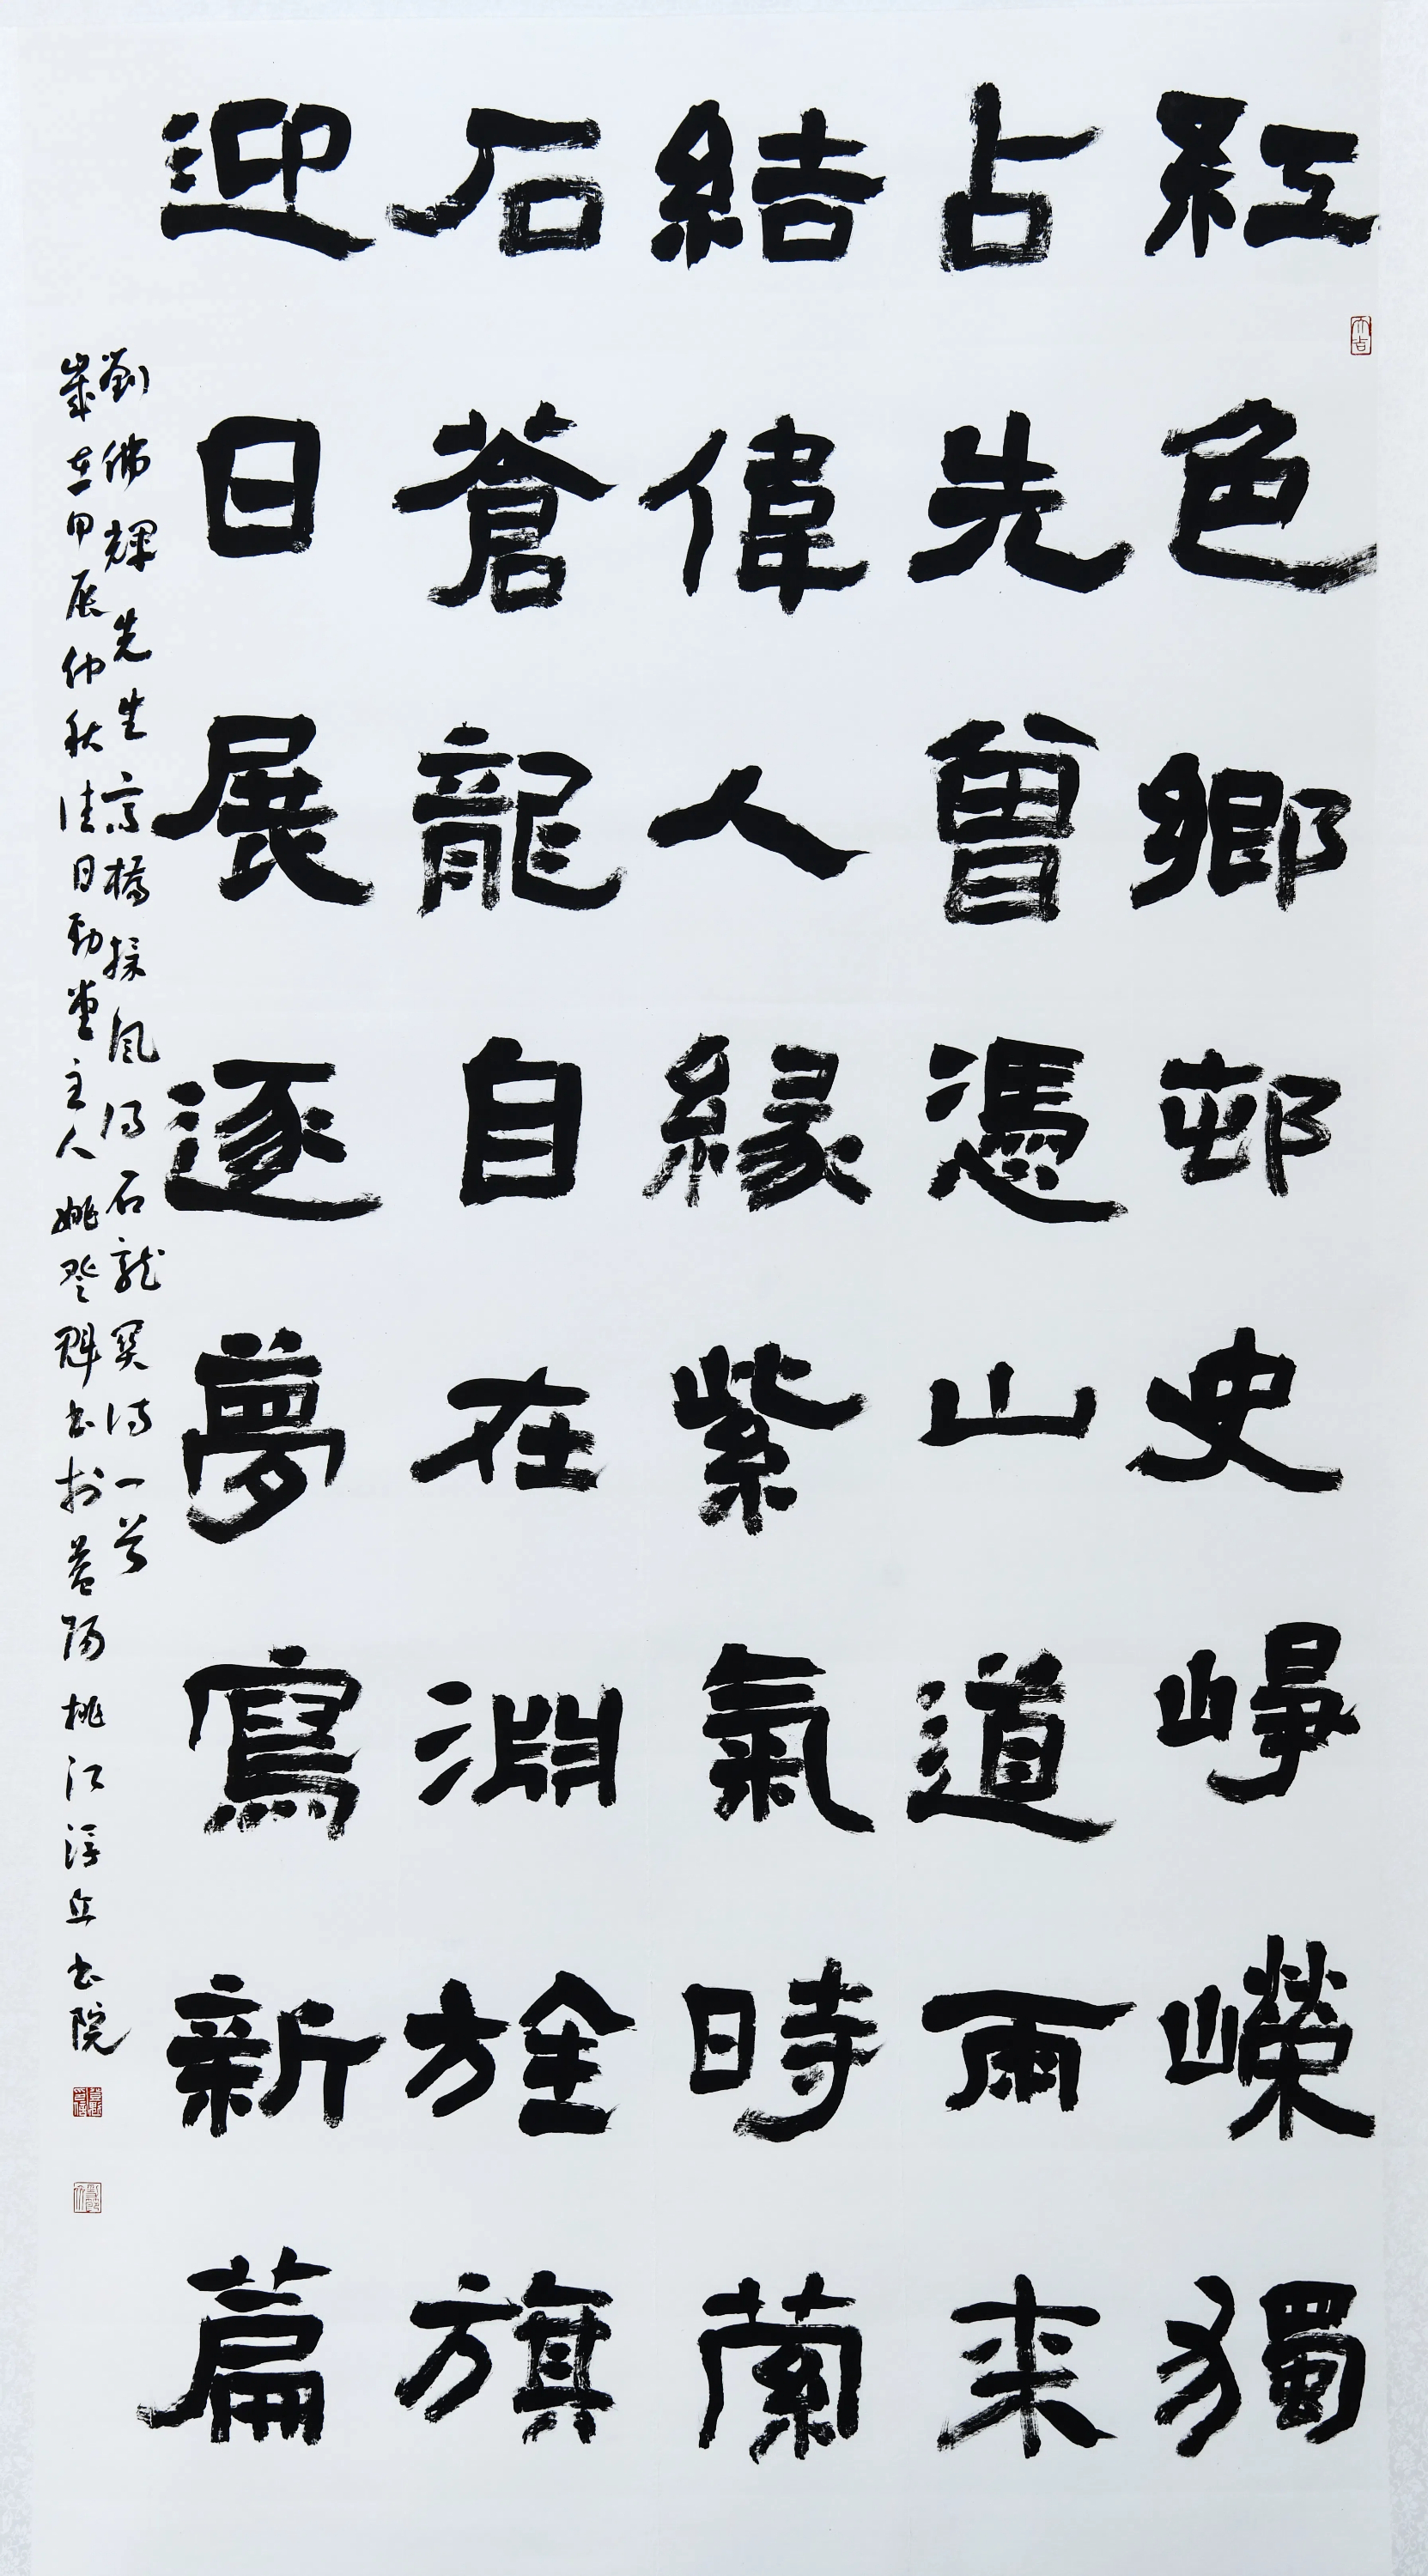 紅色鄉邨史崢嶸獨
占先曾憑山道雨来
結偉人緣紫氣時縈
石蒼龍自在淵旌旗
迎日展逐夢寫新篇
劉佛輝先生高橋採風得石龍寞詩一首
歲在甲辰仲秋佳日勁堂主人姚登魁书於益陽桃江浮丘书院